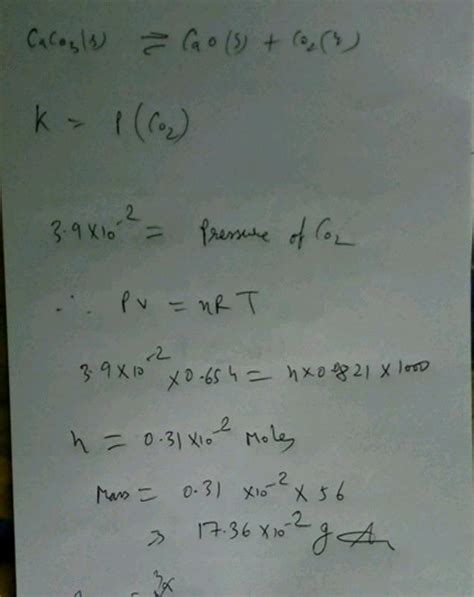 CaCO3(s) ⇌ CaO(s) + CO2(g)
K = P(CO2)
3.9×10⁻² = Pressure of CO2
∴ PV = nRT
3.9×10⁻² × 0.654 = n×0.0821×1000
n = 0.31×10⁻² Moles
Mass = 0.31 ×10⁻² × 56
⇒ 17.36×10⁻² g